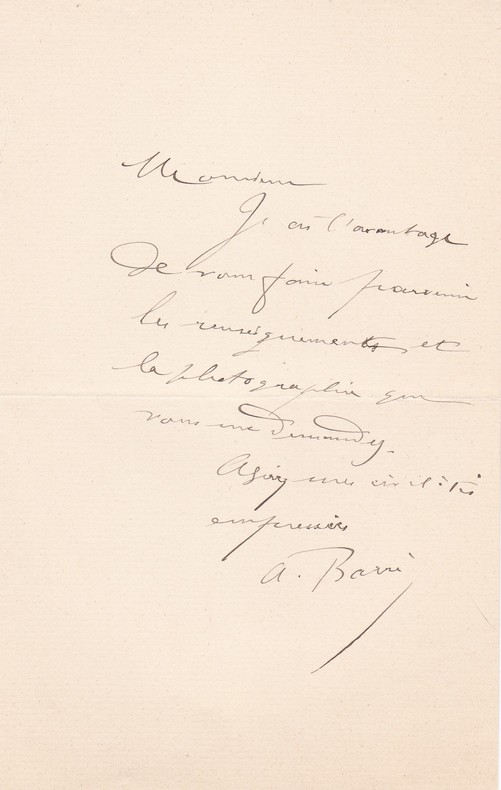 Monsieur
Je ai l'avantage
de vous faire parvenir
les renseignements et
la photographie que
vous me demandez.
Agréez mes civilités
empressées
A. Barré